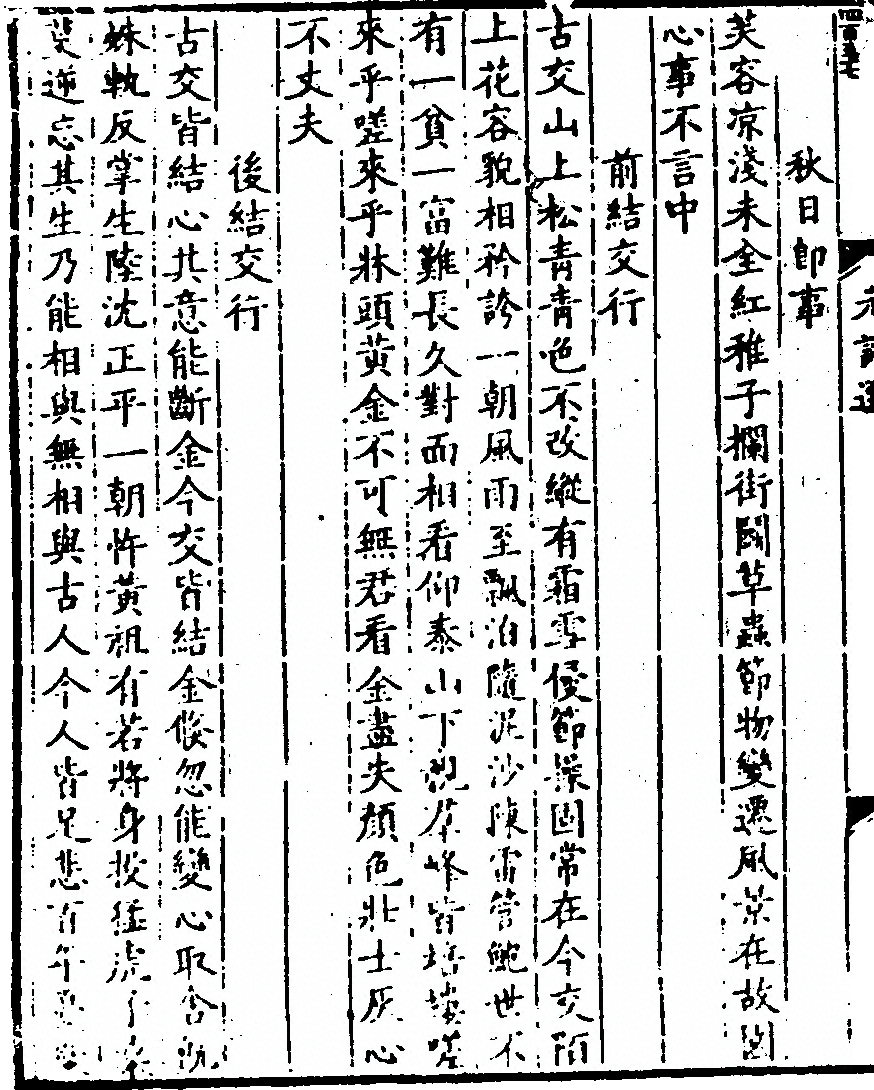 秋日即事
芙容凉淺未全紅稚子欄街鬭草蟲節物變遷風景在故園
心事不言中
前結交行
古交山上松青青色不改縱有霜雪侵節操固常在今交陌
上花容貌相矜誇一朝風雨至飄泊隨泥沙陳雷管鮑世不
有一貧一富難長久對面相看仰泰山下視羣峰皆培塿嗟
來乎嗟來乎牀頭黄金不可無君看金盡失顏色壯士灰心
不丈夫
後結交行
古交皆結心共意能斷金今交皆結金倐忽能變心取舍
姝執反掌生陸沈正平一朝忤黃祖有若將身投猛虎子
莫逆忘其生乃能相與無相與古人今人皆足悲百年